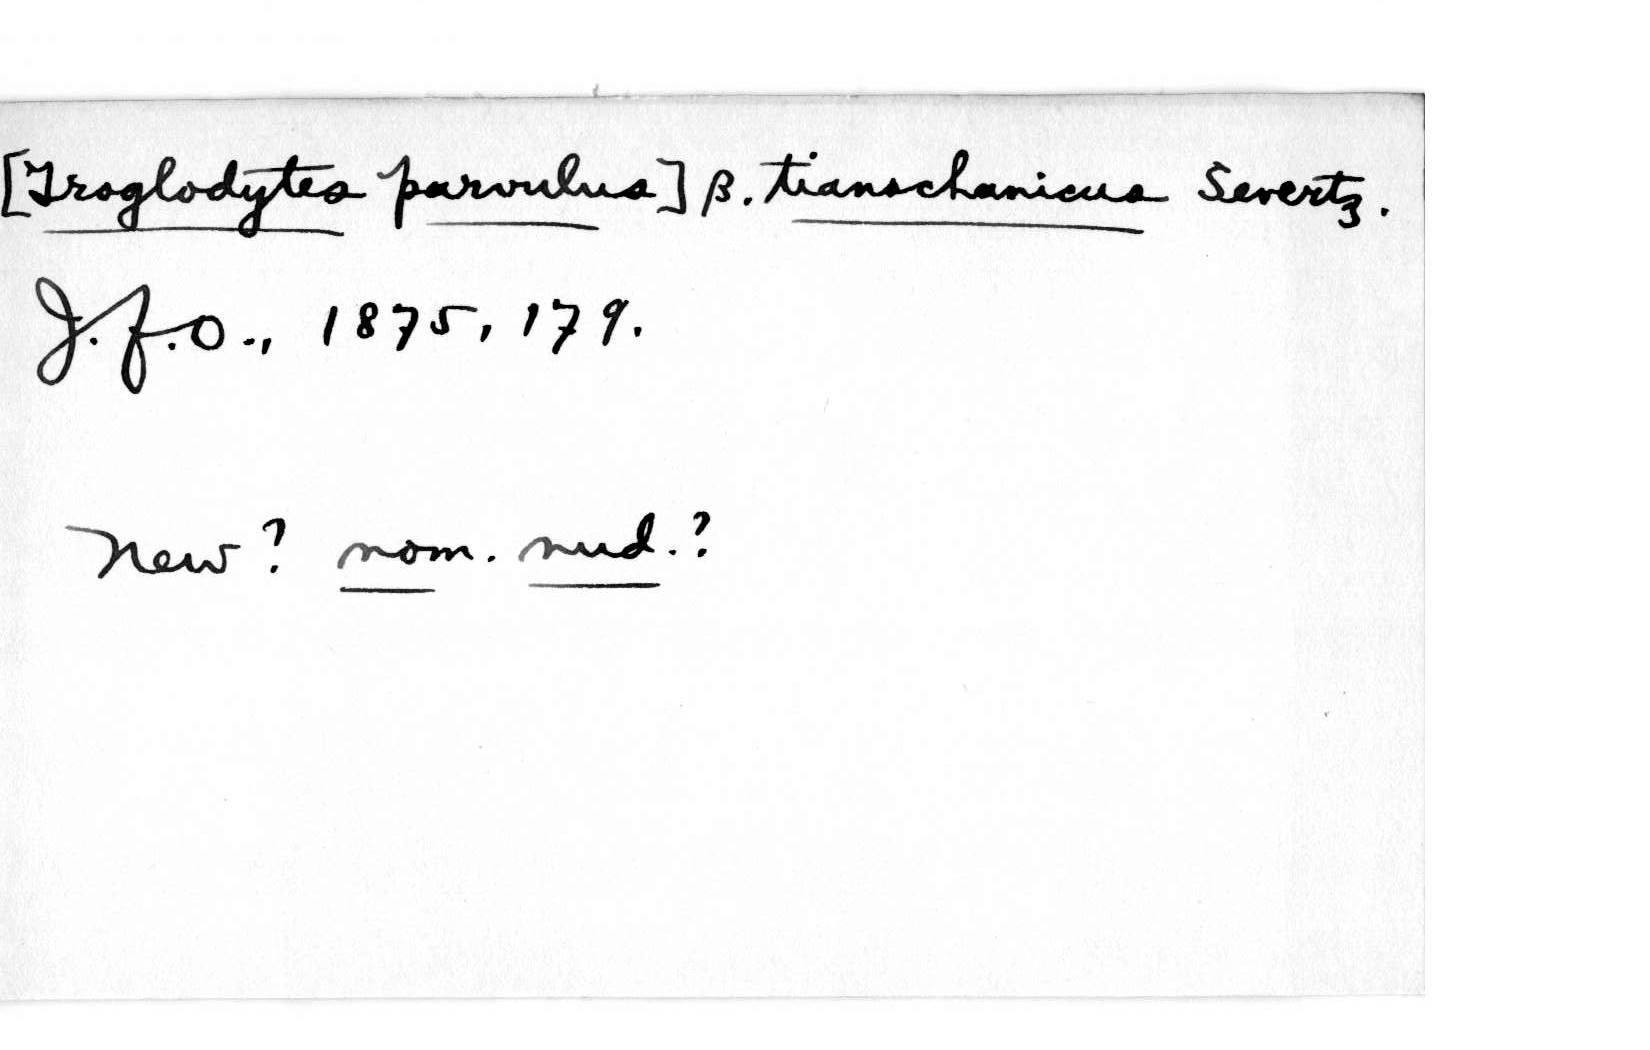 [Troglodytes parvulus] β. tianschanicus Severtz.
J.f.O., 1875, 179.
New? nom. nud.?